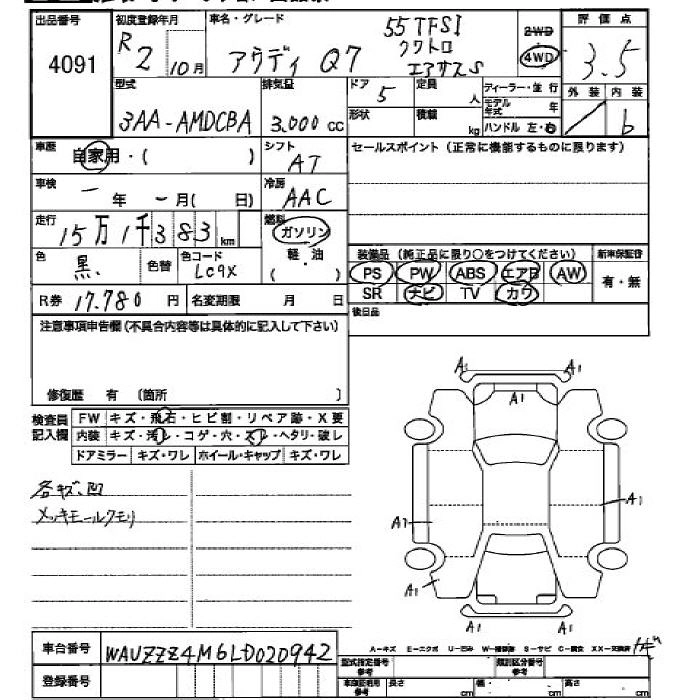 出品番号 初度登録年月 車名・グレード 評価点
4091 R2 10月 アウディ Q7 55TFSI クワトロ エアサスS 2WD 4WD 3.5
型式 排気量 ドア 定員 ディーラー・並行 外装 内装
3AA-AMDCBA 3.000cc 5 人 モデル年式 年 b
形状 積載 kg ハンドル 左・右
車歴 自家用・( ) シフト AT セールスポイント(正常に機能するものに限ります)
車検 一年 一月( 日) 冷房 AAC
走行 15万1千383km 燃料 ガソリン
色 黒 色替 色コード LC9X 軽・油 ( )
装備品(純正品に限り○をつけてください) 新車保証書
PS PW ABS エアB AW 有・無
SR ナビ TV カワ
R券 17.780円 名変期限 月 日
後日品
注意事項申告欄(不具合内容等は具体的に記入して下さい)
修復歴 有 〔箇所 〕
検査員記入欄
FW キズ・飛石・ヒビ割・リペア跡・X要
内装 キズ・汚レ・コゲ・穴・スレ・ヘタリ・破レ
ドアミラー キズ・ワレ ホイール・キャップ キズ・ワレ
各キズ、凹
メッキモールクモリ
A1 A1
A1
A1
A1
A1
A1 A1
A-キズ E-エクボ U-凹ミ W-補修跡 S-サビ C-腐食 XX-交換済
車台番号 WAUZZZ4M6LD020942
登録番号
型式指定番号 参考 類別区分番号 参考
車検証利用 参考 長さ cm 幅 cm 高さ cm